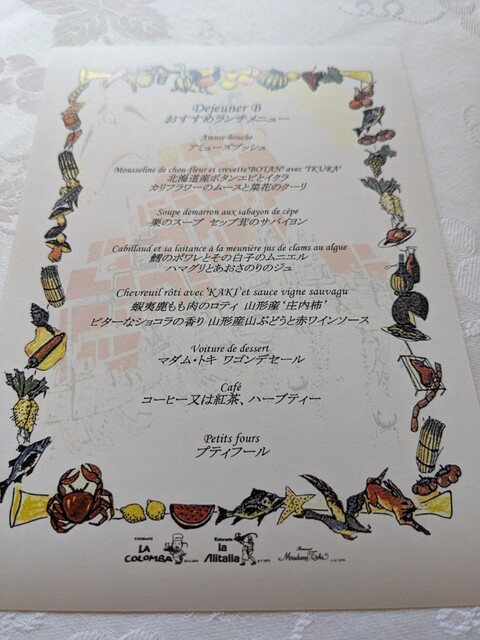 Dejeuner B
おすすめランチメニュー
Amuse-bouche
アミューズブッシュ
Mousseline de chou-fleur et crevette"BOTAN" avec "IKURA"
北海道産ボタンエビとイクラ
カリフラワーのムースと菜花のクーリ
Soupe demarron aux sabayon de cépe
栗のスープ セップ茸のサバイヨン
Cabillaud et sa laitance à la meunière jus de clams au algue
鱈のポワレとその白子のムニエル
ハマグリとあおさのりのジュ
Chevreuil rôti avec "KAKI" et sauce vigne sauvagu
蝦夷鹿もも肉のロティ 山形産"庄内柿"
ビターなショコラの香り 山形産山ぶどうと赤ワインソース
Voiture de dessert
マダム・トキ ワゴンデセール
Café
コーヒー又は紅茶、ハーブティー
Petits fours
プティフール
RISTORANTE
LA
COLOMBA
Ristorante
la
Alitalia
Madame Toki